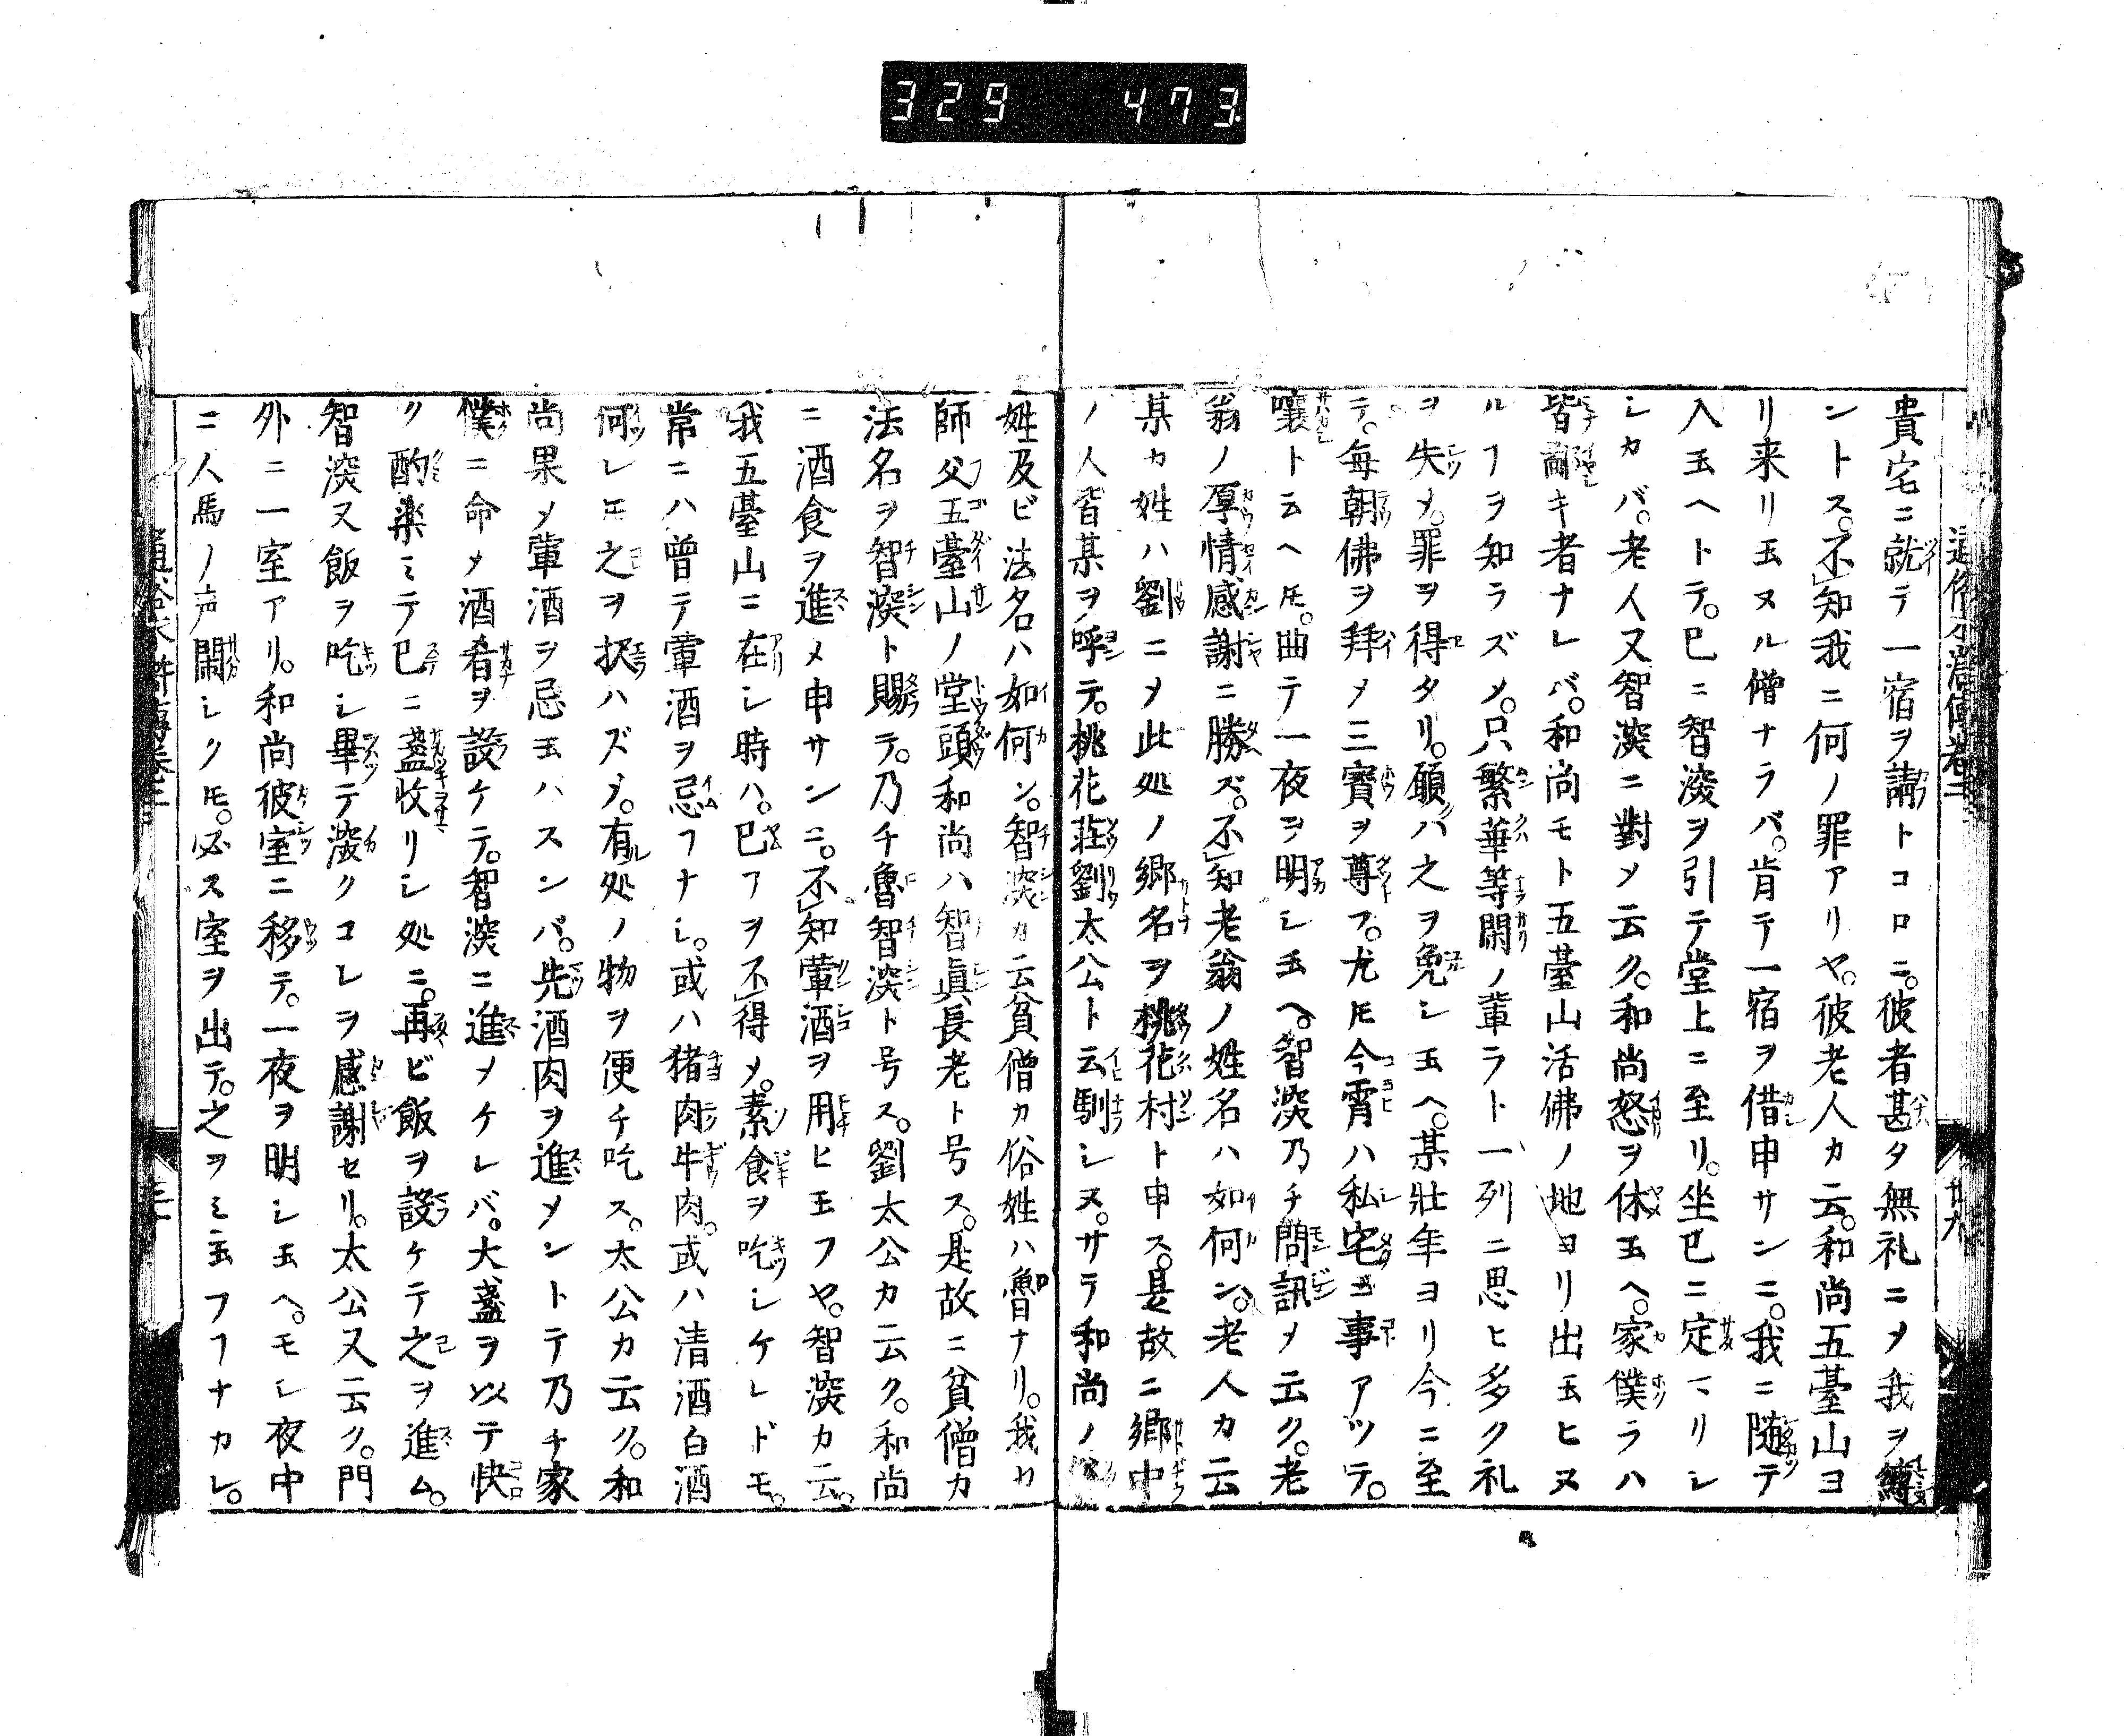 329 473
貴宅ニ就テ一宿ヲ請トコロニ。彼者甚タ無礼ニメ我ヲ縛
ントス。不知我ニ何ノ罪アリヤ。彼老人カ云。和尚五臺山ヨ
リ来リ玉ヌル僧ナラバ。肯テ一宿ヲ借申サンニ。我ニ随テ
入玉ヘトテ。巳ニ智深ヲ引テ堂上ニ至リ。坐巳ニ定マリシ
シカバ。老人又智深ニ對メ云ク。和尚怒ヲ休玉ヘ。家僕ラハ
皆鄙キ者ナレバ。和尚モト五臺山活佛ノ地ヨリ出玉ヒヌ
ルヿヲ知ラズメ。只繁華等閑ノ輩ラト一列ニ思ヒ多ク礼
ヲ失メ。罪ヲ得タリ。願ハ之ヲ免シ玉ヘ。某壯年ヨリ今ニ至
テ。毎朝佛ヲ拜メ三寳ヲ尊フ。尤モ今霄ハ私宅ニ事アツテ。
嚷ト云ヘ𪜈。曲テ一夜ヲ明シ玉ヘ。智深乃チ問訊メ云ク。老
翁ノ厚情感謝ニ勝ズ。不知老翁ノ姓名ハ如何ン。老人カ云
某カ姓ハ劉ニメ此処ノ郷名ヲ桃花村ト申ス。是故ニ郷中
ノ人皆某ヲ呼テ。桃花莊劉太公ト云馴シヌ。サテ和尚ノ
姓及ビ法名ハ如何ン。智深カ云貧僧カ俗姓ハ魯ナリ。我カ
師父五臺山ノ堂頭和尚ハ智眞長老ト号ス。是故ニ貧僧カ
法名ヲ智深ト賜テ。乃チ魯智深ト号ス。劉太公カ云ク。和尚
ニ酒食ヲ進メ申サンニ。不知葷酒ヲ用ヒ玉フヤ。智深カ云。
我五臺山ニ在シ時ハ。巳ヿヲ不得メ。素食ヲ吃シケレドモ。
常ニハ曽テ葷酒ヲ忌フナシ。或ハ猪肉牛肉。或ハ清酒白酒
何レ𪜈之ヲ択ハズメ。有処ノ物ヲ便チ吃ス。太公カ云ク。和
尚果メ葷酒ヲ忌玉ハスンバ。先酒肉ヲ進メントテ乃チ家
僕ニ命メ酒肴ヲ設ケテ。智深ニ進メケレバ。大盞ヲ以テ快
ク酌楽ミテ巳ニ盃收リシ処ニ。再ビ飯ヲ設ケテ之ヲ進ム。
智深又飯ヲ吃シ畢テ深クコレヲ感謝セリ。太公又云ク。門
外ニ一室アリ。和尚彼室ニ移テ。一夜ヲ明シ玉ヘ。モシ夜中
ニ人馬ノ声閙シク𪜈。必ス室ヲ出テ。之ヲミ玉フヿナカレ。